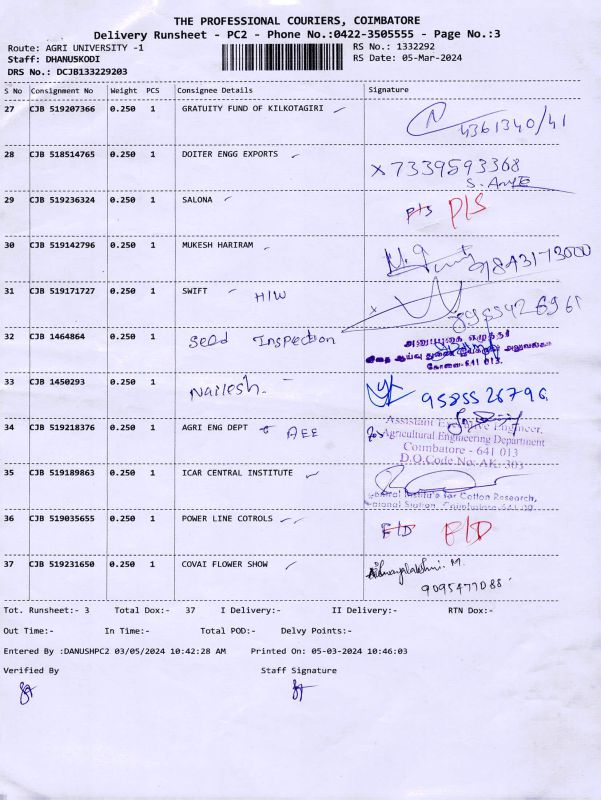 THE PROFESSIONAL COURIERS, COIMBATORE
Delivery Runsheet - PC2 - Phone No.:0422-3505555 - Page No.:3
Route: AGRI UNIVERSITY -1 RS No.: 1332292
Staff: DHANUSKODI RS Date: 05-Mar-2024
DRS No.: DCJB133229203
S No Consignment No Weight PCS Consignee Details Signature
27 CJB 519207366 0.250 1 GRATUITY FUND OF KILKOTAGIRI 4361340/41
28 CJB 518514765 0.250 1 DOITER ENGG EXPORTS x 7339593368
29 CJB 519236324 0.250 1 SALONA P/S P/S
30 CJB 519142796 0.250 1 MUKESH HARIRAM
31 CJB 519171727 0.250 1 SWIFT H/W
32 CJB 1464864 0.250 1 Seed Inspection
கோவை-641 013.
33 CJB 1450293 0.250 1 Nailesh. 9585526796
34 CJB 519218376 0.250 1 AGRI ENG DEPT AEE
Assistant Executive Engineer,
Agricultural Engineering Department
Coimbatore - 641 013
D.O.Code No. AK. 303
35 CJB 519189863 0.250 1 ICAR CENTRAL INSTITUTE
Central Institute for Cotton Research,
Regional Station, Coimbatore-641 00
36 CJB 519035655 0.250 1 POWER LINE COTROLS F/D F/D
37 CJB 519231650 0.250 1 COVAI FLOWER SHOW
9095477088
Tot. Runsheet:- 3 Total Dox:- 37 I Delivery:- II Delivery:- RTN Dox:-
Out Time:- In Time:- Total POD:- Delvy Points:-
Entered By :DANUSHPC2 03/05/2024 10:42:28 AM Printed On: 05-03-2024 10:46:03
Verified By Staff Signature